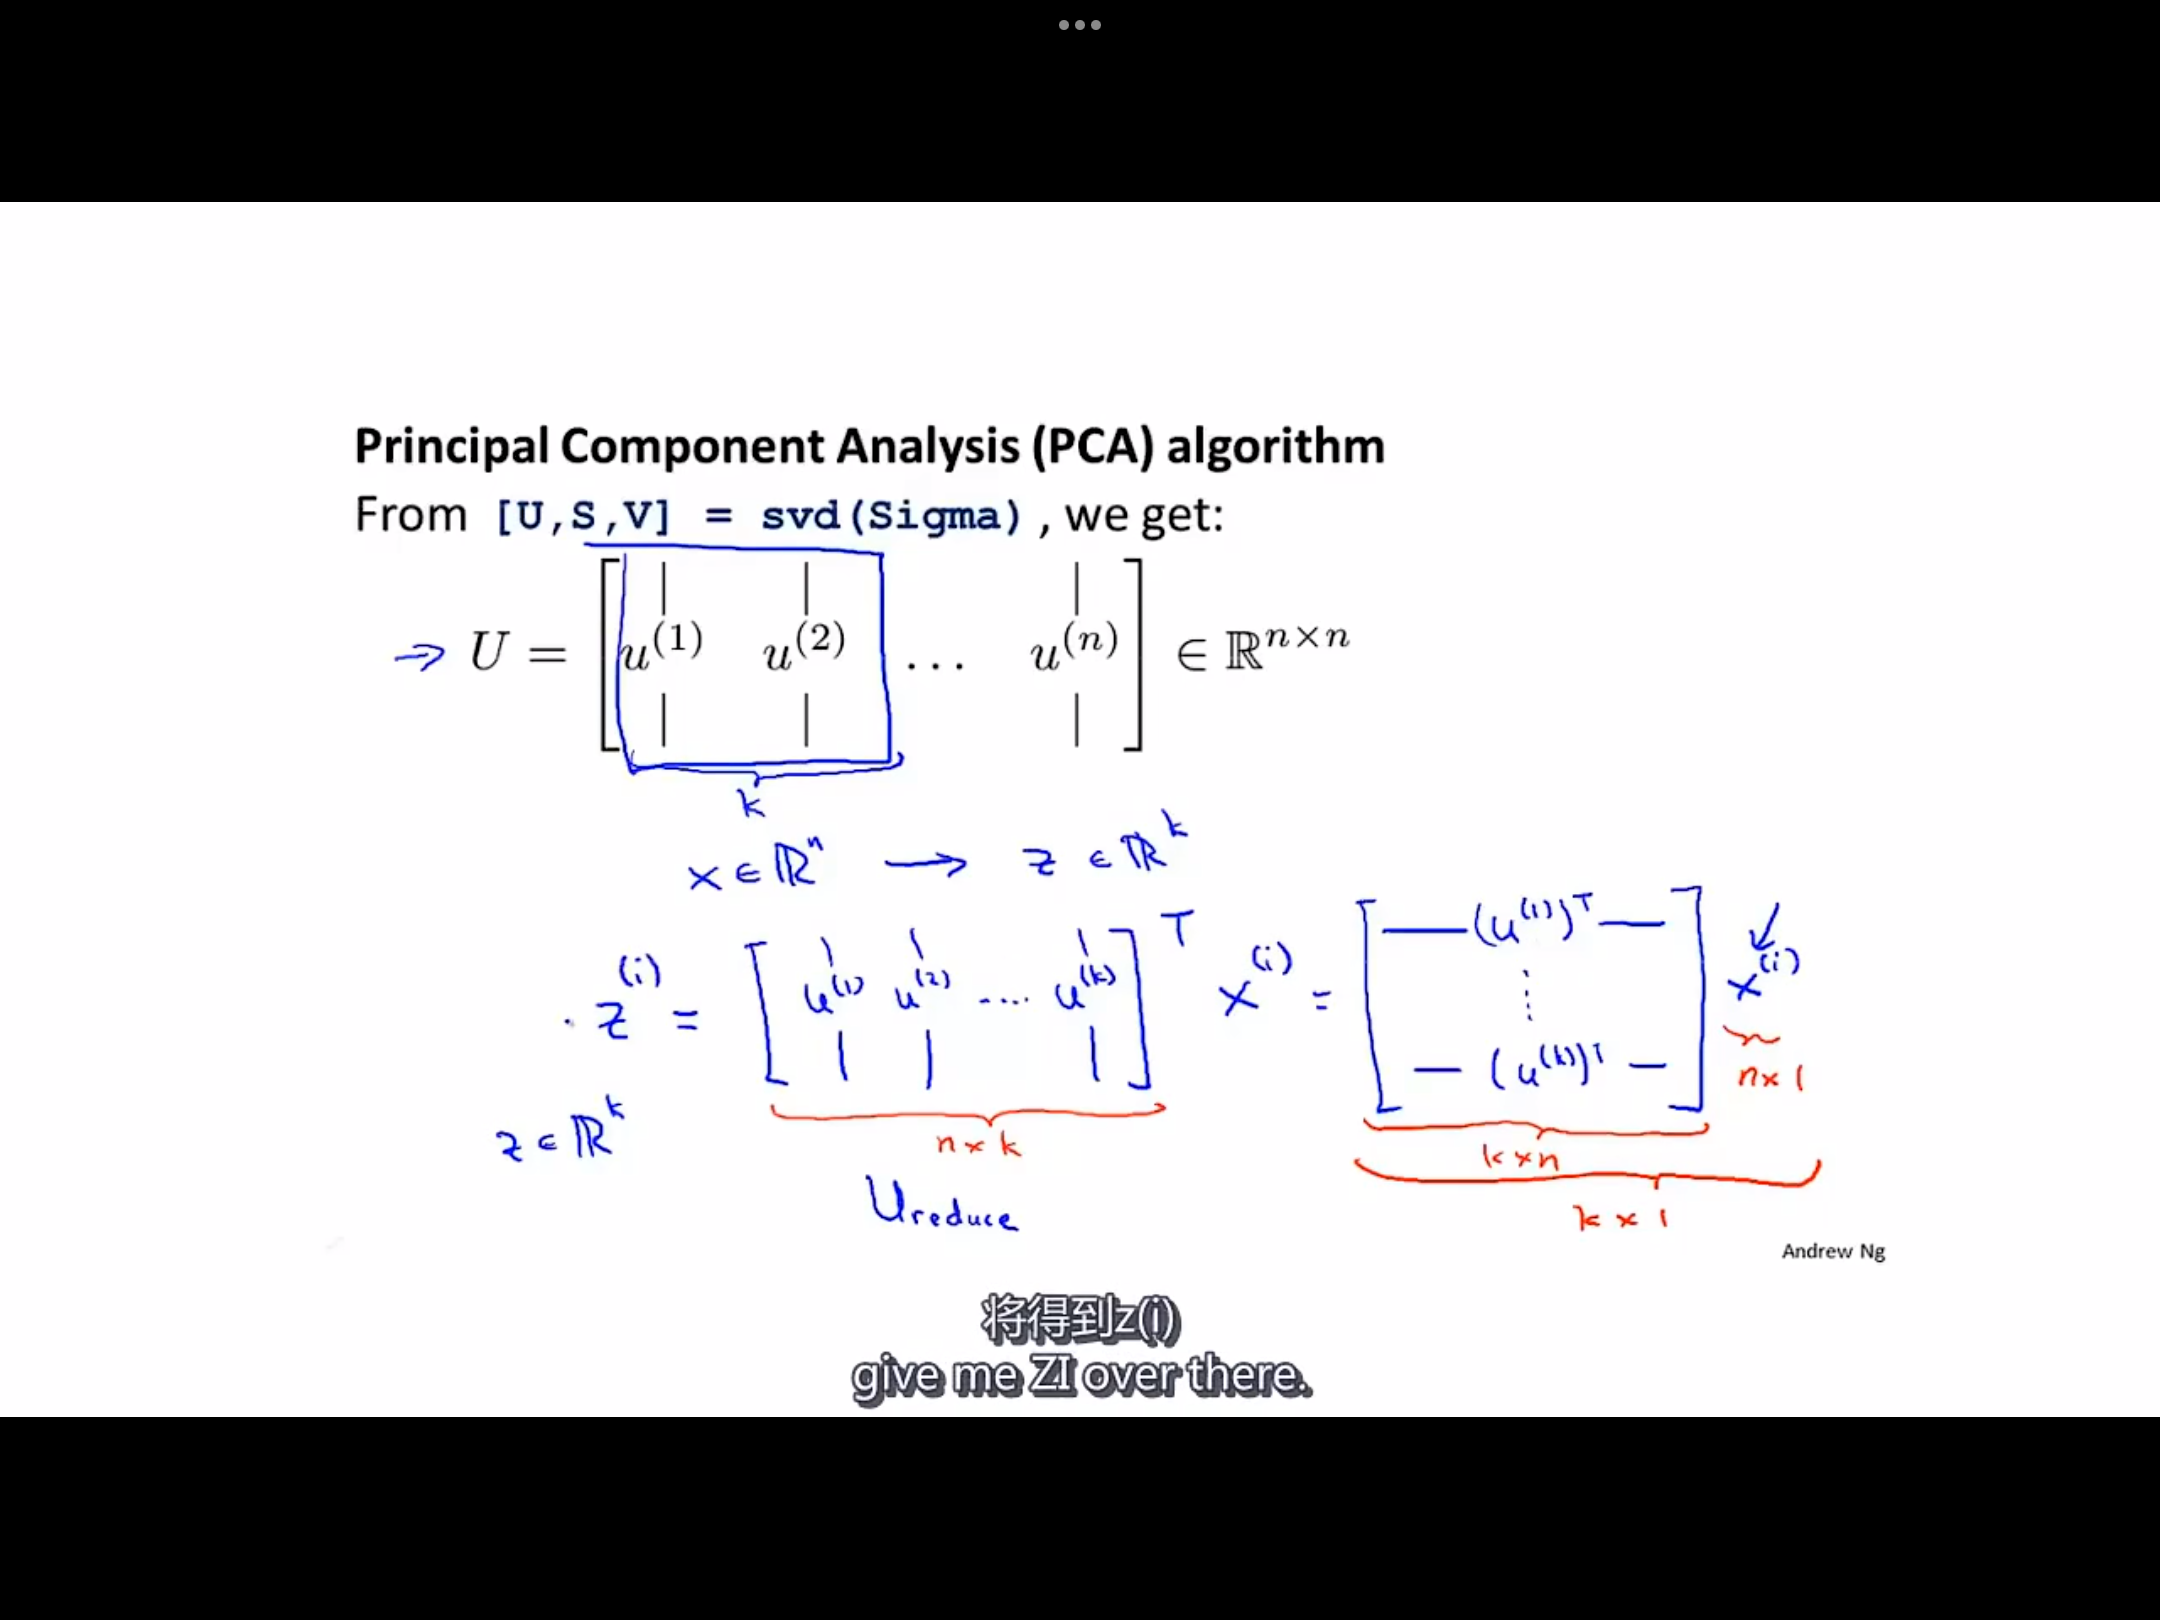 Principal Component Analysis (PCA) algorithm
From [U,S,V] = svd(Sigma) , we get:
→ U = [ u^(1) u^(2) ... u^(n) ] ∈ ℝ^{n×n}
k
x ∈ ℝ^n → z ∈ ℝ^k
z^(i) = [ u^(1) u^(2) .... u^(k) ]^T x^(i) = [ — (u^(1))^T — ⋮ — (u^(k))^T — ] x^(i)
n×1
z ∈ ℝ^k
n×k
k×n
Ureduce
k×1
Andrew Ng
将得到z(i)
give me ZI over there.